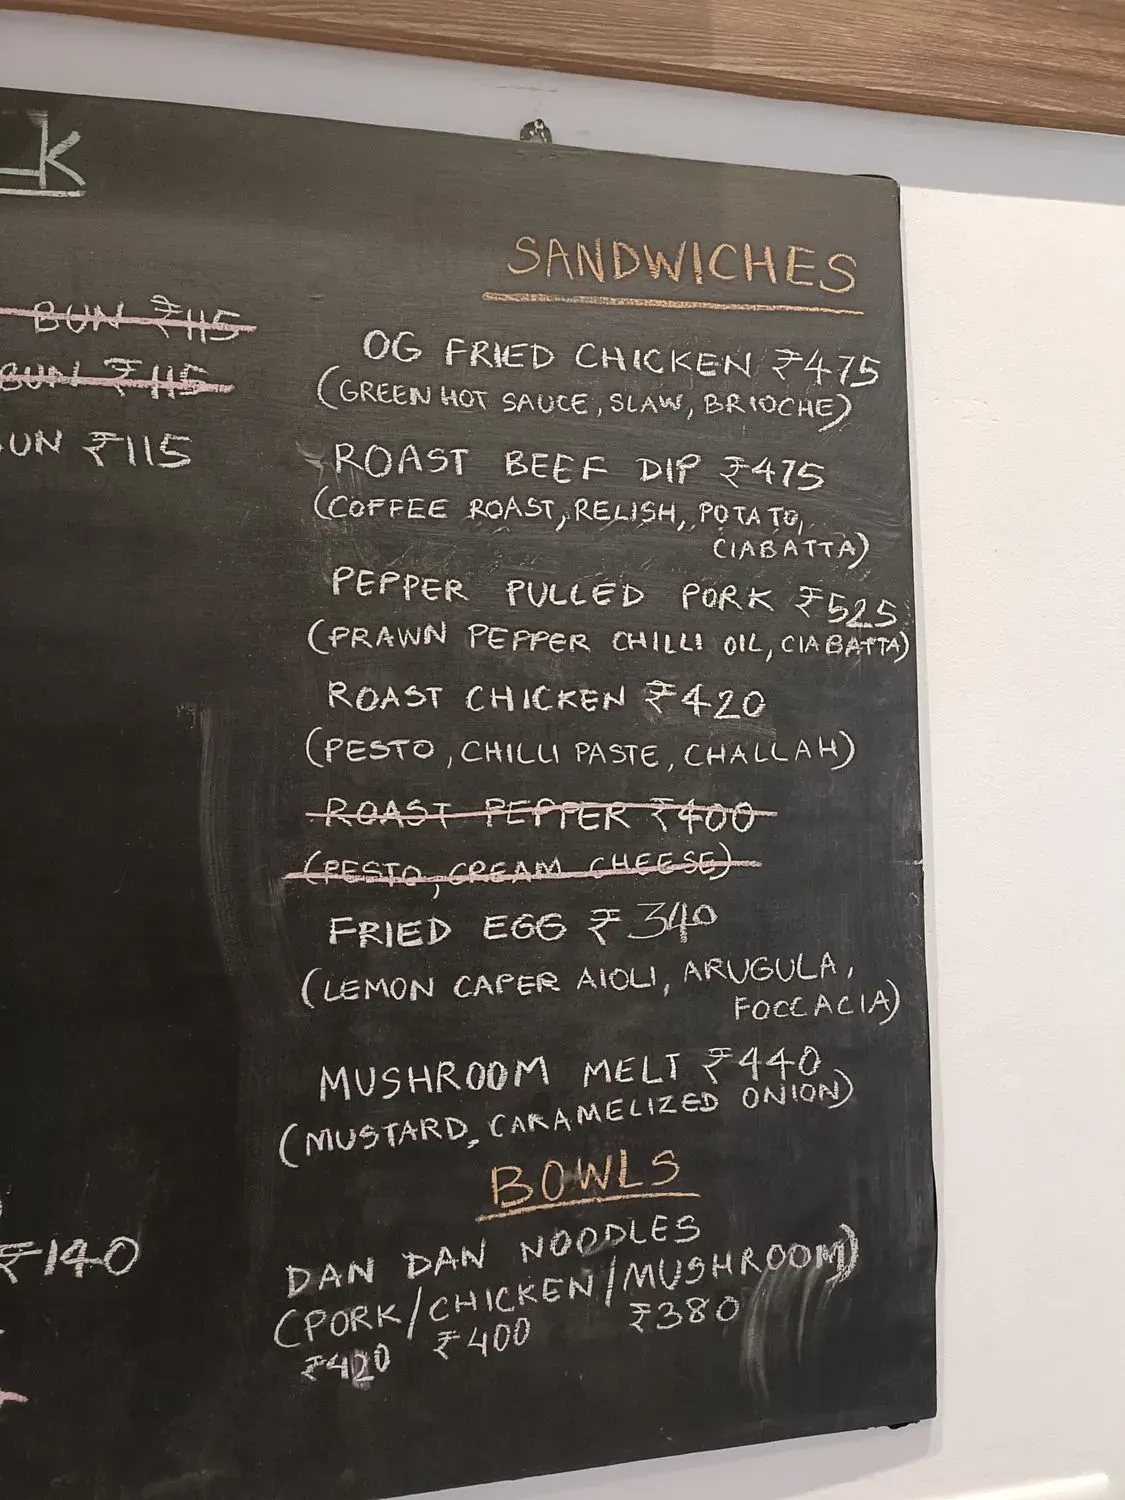 K
BUN ₹115
BUN ₹115
UN ₹115
₹140
SANDWICHES
OG FRIED CHICKEN ₹475
(GREEN HOT SAUCE, SLAW, BRIOCHE)
ROAST BEEF DIP ₹475
(COFFEE ROAST, RELISH, POTATO,
CIABATTA)
PEPPER PULLED PORK ₹525
(PRAWN PEPPER CHILLI OIL, CIABATTA)
ROAST CHICKEN ₹420
(PESTO, CHILLI PASTE, CHALLAH)
ROAST PEPPER ₹400
(PESTO, CREAM CHEESE)
FRIED EGG ₹340
(LEMON CAPER AIOLI, ARUGULA,
FOCCACIA)
MUSHROOM MELT ₹440
(MUSTARD, CARAMELIZED ONION)
BOWLS
DAN DAN NOODLES
(PORK/CHICKEN/MUSHROOM)
₹420 ₹400 ₹380